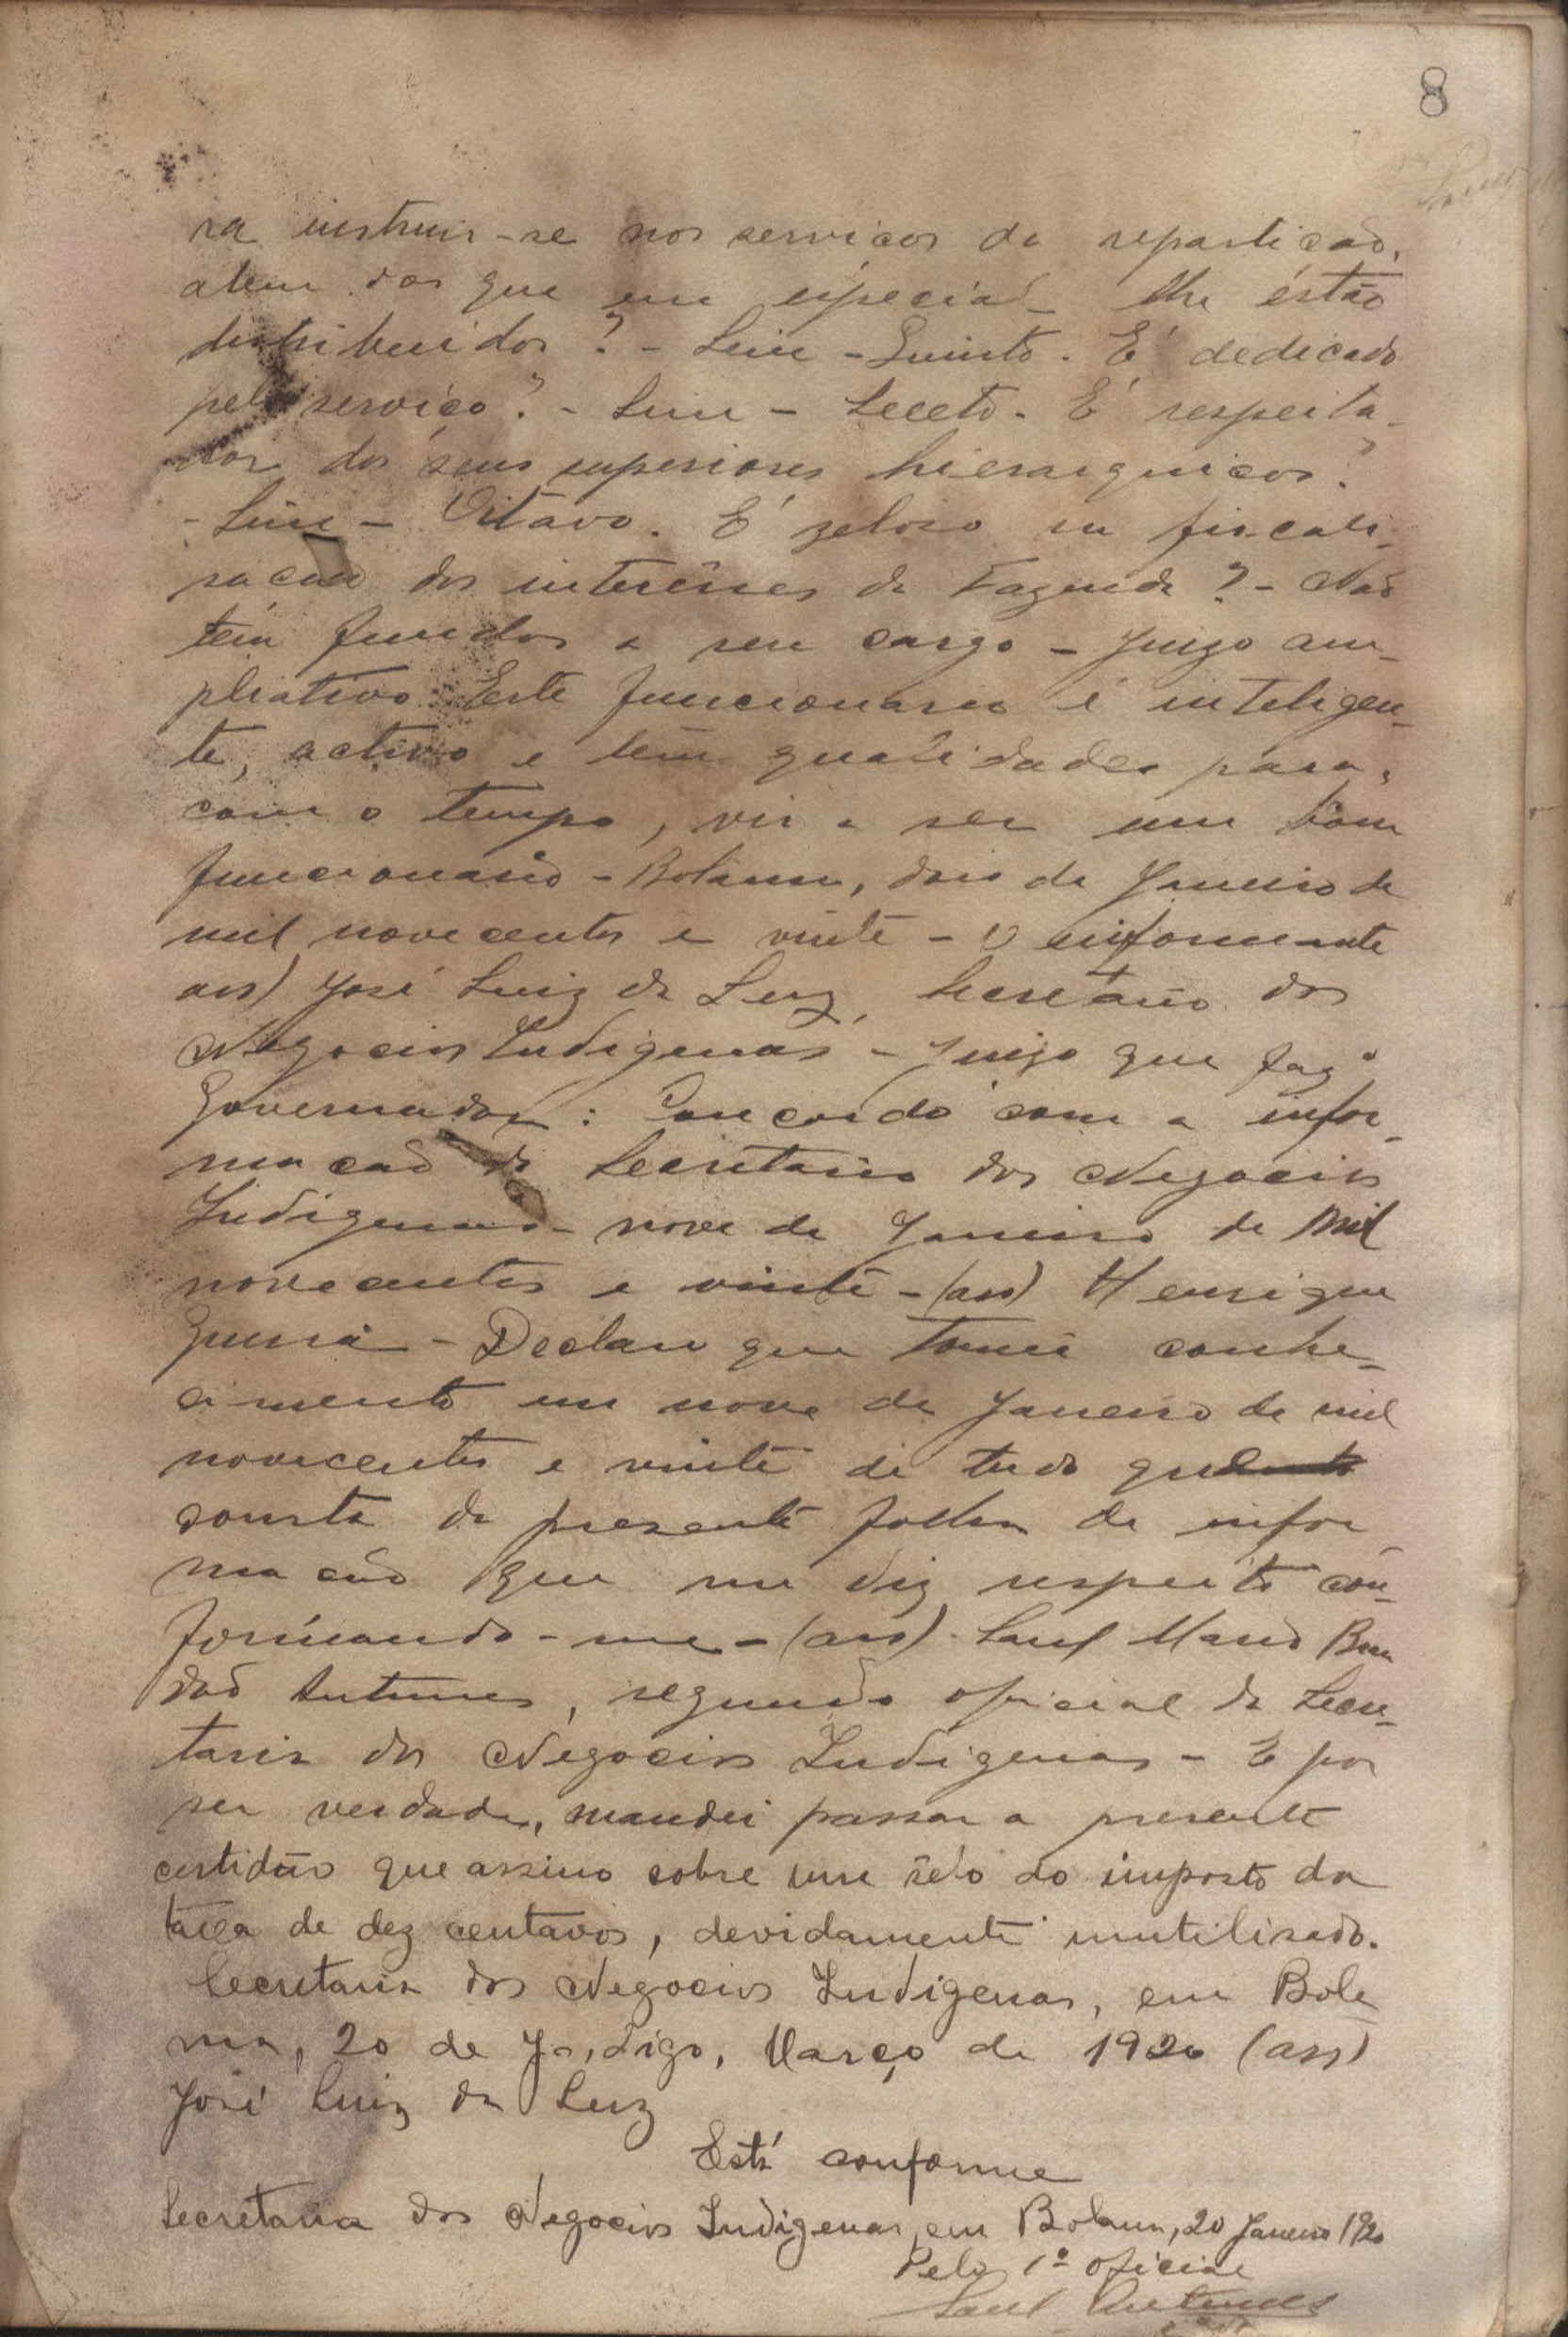 8
ra instruir-se nos serviços da repartição,
alem dos que em especial lhe éstão
distribuidos? - Sim - Quinto. É dedicado
pelo serviço? - Sim - Sexto. É respeita-
dor dos seus superiores hierarquicos?
- Sim - Oitavo. É zeloso na fiscali-
sacão dos interêsses da Fazenda? - Não
tem fundos a seu cargo - Juizo am-
pliativo. Este funcionario é inteligen-
te, activo e tem qualidades para,
com o tempo, vir a ser um bom
funcionario - Bolama, dois de Janeiro de
mil novecentos e vinte - O informante
ass) José Luiz da Luz, Secretario dos
Negocios Indigenas - Juizo que faz o
Governador: Concordo com a infor-
mação do Secretario dos Negocios
Indigenas - nove de Janeiro de mil
novecentos e vinte - (ass) Henrique
Guerra - Declaro que tomei conhe-
cimento em nove de Janeiro de mil
novecentos e vinte de tudo que
consta da presente folha de infor
mação que me diz respeito con-
formando-me - (ass) - Saul Mario
Antunes, segundo oficial da Secre-
taria dos Negocios Indigenas - E por
ser verdade, mandei passar a presente
certidão que assino sobre um sêlo do imposto da
taxa de dez centavos, devidamente inutilisado.
Secretaria dos Negocios Indigenas, em Bola
ma, 20 de Ja, digo, Março de 1920 (ass)
José Luiz da Luz
Está conforme
Secretaria dos Negocios Indigenas, em Bolama, 20 Janeiro 1920
Pelo 1º oficial
Saul Antunes